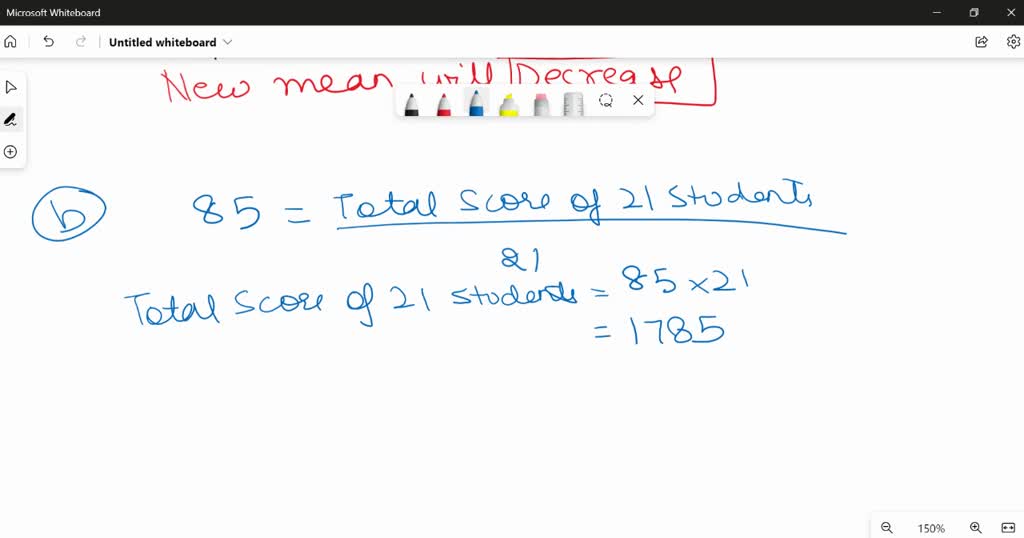 Microsoft Whiteboard
Untitled whiteboard
New mean will Decrease
b 85 = Total Score of 21 Students
21
Total Score of 21 students = 85 × 21
= 1785
150%